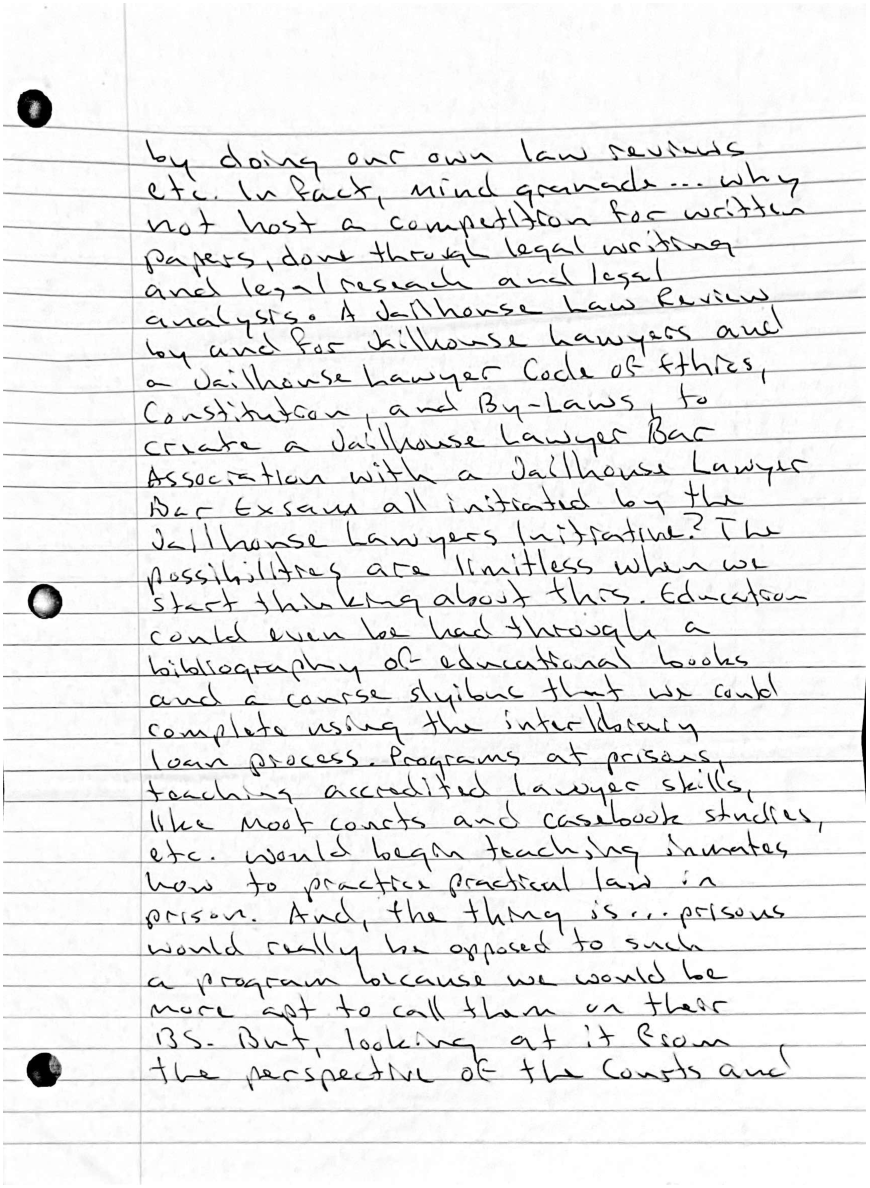 by doing our own law reviews
etc. In fact, mind granade... why
not host a competition for written
papers, done through legal writing
and legal reseach and legal
analysis. A Jailhouse Law Review
by and for Jailhouse Lawyers and
a Jailhouse Lawyer Code of Ethics,
Constitution, and By-Laws, to
create a Jailhouse Lawyer Bar
Association with a Jailhouse Lawyer
Bar Exsam all initiated by the
Jailhouse Lawyers Initiative? The
possibilities are limitless when we
start thinking about this. Education
could even be had through a
bibliography of educational books
and a course slyibus that we could
complete using the interlibrary
loan process. Programs at prisons,
teaching accredited lawyer skills,
like Moot courts and casebook studies,
etc. would begin teaching inmates
how to practice practical law in
prison. And, the thing is... prisons
would really be opposed to such
a program because we would be
more apt to call them on their
BS. But, looking at it from
the perspective of the Courts and